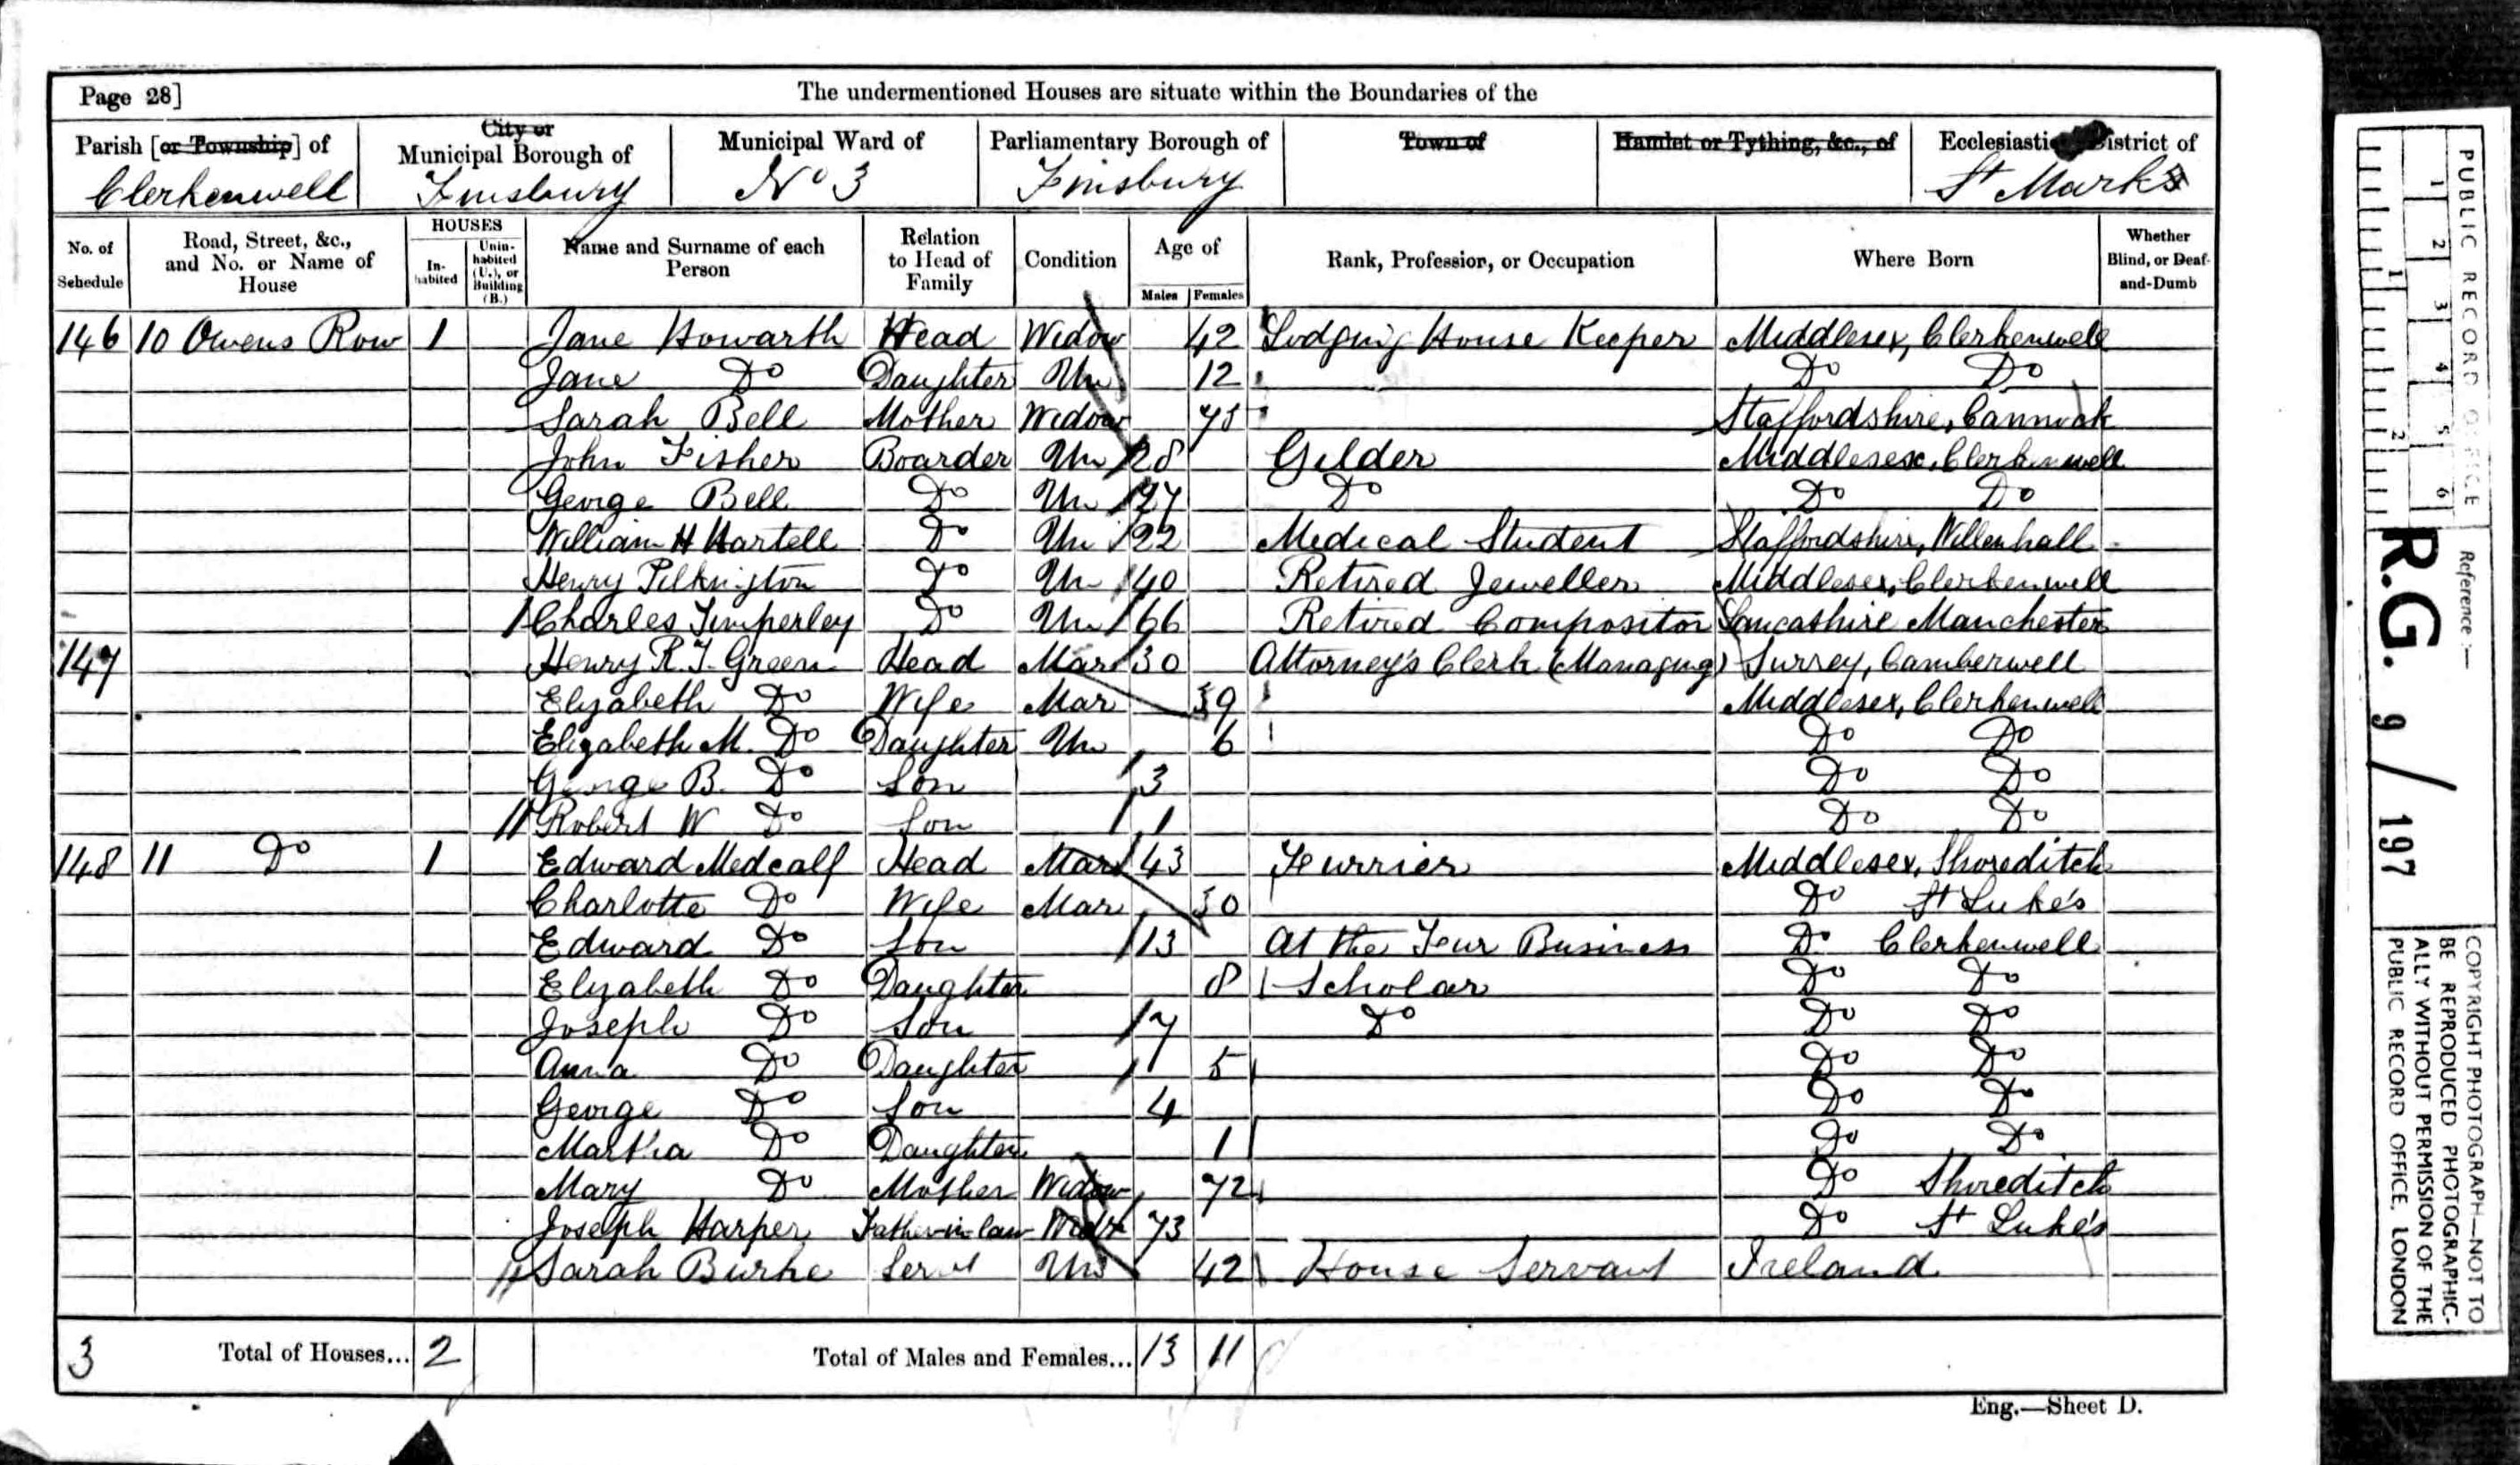 Page 28]
The undermentioned Houses are situate within the Boundaries of the
Parish [or Township] of
Clerkenwell
City or
Municipal Borough of
Finsbury
Municipal Ward of
No 3
Parliamentary Borough of
Finsbury
Town of
Hamlet or Tything, &c., of
District of
St Mark's
No. of Schedule
Road, Street, &c., and No. or Name of House
HOUSES
In-habited
Unin-habited (U.), or Building (B.)
Name and Surname of each Person
Relation to Head of Family
Condition
Age of
Males Females
Rank, Profession, or Occupation
Where Born
Whether Blind, or Deaf-and-Dumb
146 10 Owens Row 1 Jane Howarth Head Widow 42 Lodging House Keeper Middlesex, Clerkenwell
Jane Do Daughter Un 12 Do Do
Sarah Bell Mother Widow Staffordshire,
John Fisher Boarder Un 28 Gilder Middlesex, Clerkenwell
George Bell Do Un 27 Do Do Do
William H Hartell Do Un 22 Medical Student Staffordshire, Willenhall
Henry Pilkington Do Un 40 Retired Jeweller Middlesex, Clerkenwell
Charles Timperley Do Un 66 Retired Compositor Lancashire Manchester
147 Henry R. T. Green Head Mar 30 Attorney's Clerk (Managing) Surrey, Camberwell
Elizabeth Do Wife Mar 39 Middlesex, Clerkenwell
Elizabeth M. Do Daughter Un 6 Do Do
George B. Do Son 3 Do Do
Robert W Do Son 1 Do Do
148 11 Do 1 Edward Medcalf Head Mar 43 Furrier Middlesex, Shoreditch
Charlotte Do Wife Mar 30 Do St Luke's
Edward Do Son 13 At the Feur Business Do Clerkenwell
Elizabeth Do Daughter 8 Scholar Do Do
Joseph Do Son 7 Do Do Do
Anna Do Daughter 5 Do Do
George Do Son 4 Do Do
Martha Do Daughter 1 Do Do
Mary Do Mother Widow 72 Do Shoreditch
Joseph Harper Father-in-law Widr 73 Do St Luke's
Sarah Burke Servt Un 42 House Servant Ireland
3 Total of Houses... 2 Total of Males and Females... 13 11
Eng.—Sheet D.
PUBLIC RECORD OFFICE
1 2 3 4 5 6
1 2
Reference:—
R.G. 9/197
COPYRIGHT PHOTOGRAPH—NOT TO
BE REPRODUCED PHOTOGRAPHIC-
ALLY WITHOUT PERMISSION OF THE
PUBLIC RECORD OFFICE, LONDON